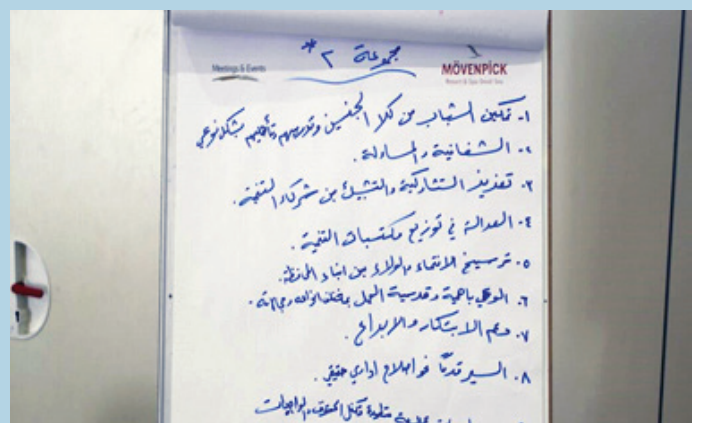 مجموعة ٢ *
Meetings & Events
MÖVENPICK
Resort & Spa Dead Sea
١- تمكين الشباب من كلا الجنسين وتدريبهم وتأهيلهم بشكل نوعي
٢- الشفافية والمساءلة.
٣- تعزيز التشاركية والتشبيك بين شركاء التنمية.
٤- العدالة في توزيع مكتسبات التنمية.
٥- ترسيخ الانتماء والولاء بين ابناء المحافظة.
٦- الوعي باهمية وقدسية العمل بمختلف
٧- دعم الابتكار والابداع.
٨- السير قدمًا نحو اصلاح اداري حقيقي.
الحقوق والواجبات